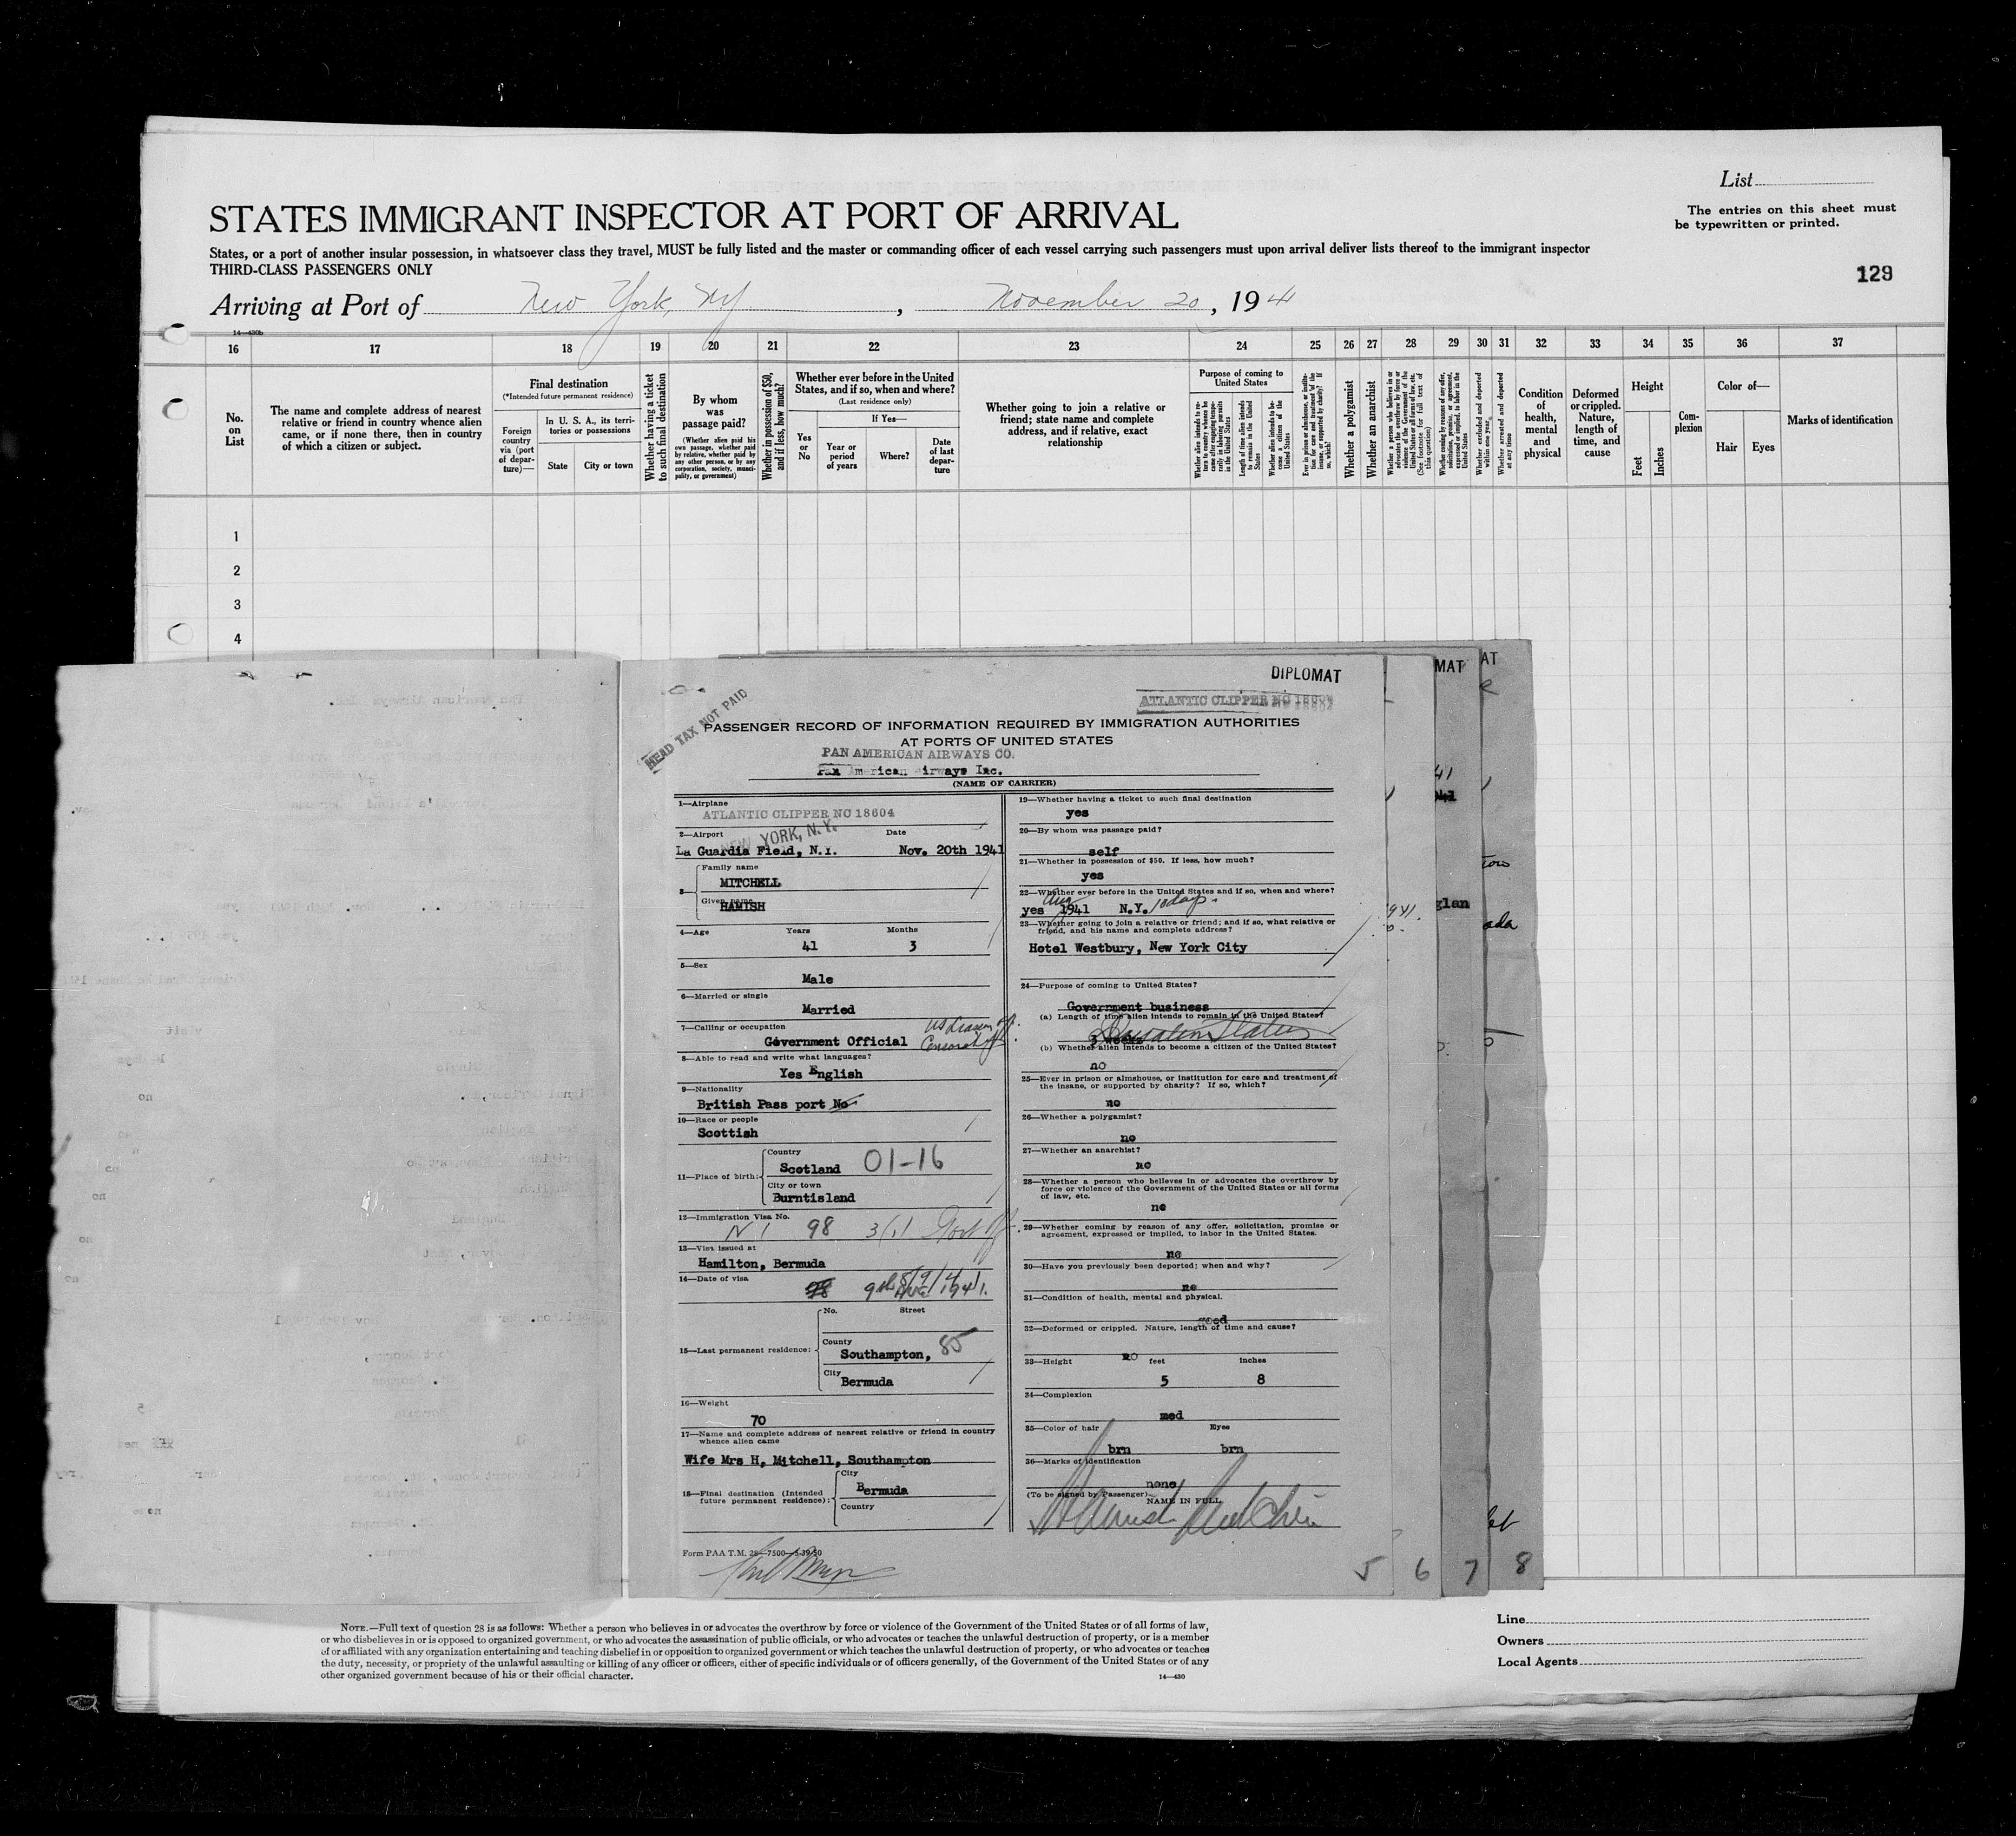 List
The entries on this sheet must
be typewritten or printed.
STATES IMMIGRANT INSPECTOR AT PORT OF ARRIVAL
States, or a port of another insular possession, in whatsoever class they travel, MUST be fully listed and the master or commanding officer of each vessel carrying such passengers must upon arrival deliver lists thereof to the immigrant inspector
THIRD-CLASS PASSENGERS ONLY
129
Arriving at Port of New York, NY, November 20, 1941
14—430b
16 17 18 19 20 21 22 23 24 25 26 27 28 29 30 31 32 33 34 35 36 37
No. on List
The name and complete address of nearest relative or friend in country whence alien came, or if none there, then in country of which a citizen or subject.
Final destination
(*Intended future permanent residence)
Foreign country via (port of departure)—
In U. S. A., its territories or possessions
State
City or town
Whether having a ticket to such final destination
By whom was passage paid?
(Whether alien paid his own passage, whether paid by relative, whether paid by any other person, or by any corporation, society, municipality, or government)
Whether in possession of $50, and if less, how much?
Whether ever before in the United States, and if so, when and where?
(Last residence only)
Yes or No
If Yes—
Year or period of years
Where?
Date of last departure
Whether going to join a relative or friend; state name and complete address, and if relative, exact relationship
Purpose of coming to United States
Length of time alien intends to remain in the United States
Whether alien intends to become a citizen of the United States
Whether a polygamist
Whether an anarchist
Whether excluded and deported within one year
Whether arrested and deported at any time
Condition of health, mental and physical
Deformed or crippled. Nature, length of time, and cause
Height
Feet
Inches
Complexion
Color of—
Hair
Eyes
Marks of identification
1
2
3
4
DIPLOMAT
MAT
AT
HEAD TAX NOT PAID
ATLANTIC CLIPPER NC 18604
PASSENGER RECORD OF INFORMATION REQUIRED BY IMMIGRATION AUTHORITIES
AT PORTS OF UNITED STATES
PAN AMERICAN AIRWAYS CO.
Pan American Airways Inc.
(NAME OF CARRIER)
1—Airplane
ATLANTIC CLIPPER NC 18604
2—Airport Date
NEW YORK, N.Y.
La Guardia Field, N.Y. Nov. 20th 1941
3—
Family name
MITCHELL
Given name
HAMISH
4—Age Years Months
41 3
5—Sex
Male
6—Married or single
Married
7—Calling or occupation
Government Official
8—Able to read and write what languages?
Yes English
9—Nationality
British Pass port No
10—Race or people
Scottish
11—Place of birth:
Country
Scotland 01-16
City or town
Burntisland
12—Immigration Visa No.
98 3(1)
13—Visa issued at
Hamilton, Bermuda
14—Date of visa
9th 1941.
15—Last permanent residence:
No. Street
County
Southampton, 85
City
Bermuda
16—Weight
70
17—Name and complete address of nearest relative or friend in country
whence alien came
Wife Mrs H, Mitchell, Southampton
18—Final destination (Intended
future permanent residence):
City
Bermuda
Country
Form PAA T.M. 28—7500—5-39-50
19—Whether having a ticket to such final destination
yes
20—By whom was passage paid?
self
21—Whether in possession of $50. If less, how much?
yes
22—Whether ever before in the United States and if so, when and where?
Aug
yes 1941 N.Y. 10 days.
23—Whether going to join a relative or friend; and if so, what relative or
friend, and his name and complete address?
Hotel Westbury, New York City
24—Purpose of coming to United States?
Government business
(a) Length of time alien intends to remain in the United States?
3 weeks
(b) Whether alien intends to become a citizen of the United States?
no
25—Ever in prison or almshouse, or institution for care and treatment of
the insane, or supported by charity? If so, which?
no
26—Whether a polygamist?
no
27—Whether an anarchist?
no
28—Whether a person who believes in or advocates the overthrow by
force or violence of the Government of the United States or all forms
of law, etc.
no
29—Whether coming by reason of any offer, solicitation, promise or
agreement, expressed or implied, to labor in the United States.
no
30—Have you previously been deported; when and why?
no
31—Condition of health, mental and physical.
good
32—Deformed or crippled. Nature, length of time and cause?
no
33—Height feet inches
5 8
34—Complexion
med
35—Color of hair Eyes
brn brn
36—Marks of identification
none
(To be signed by Passenger)
NAME IN FULL
Hamish Mitchell
5 6 7 8
NOTE.—Full text of question 28 is as follows: Whether a person who believes in or advocates the overthrow by force or violence of the Government of the United States or of all forms of law,
or who disbelieves in or is opposed to organized government, or who advocates the assassination of public officials, or who advocates or teaches the unlawful destruction of property, or is a member
of or affiliated with any organization entertaining and teaching disbelief in or opposition to organized government or which teaches the unlawful destruction of property, or who advocates or teaches
the duty, necessity, or propriety of the unlawful assaulting or killing of any officer or officers, either of specific individuals or of officers generally, of the Government of the United States or of any
other organized government because of his or their official character.
14—430
Line
Owners
Local Agents